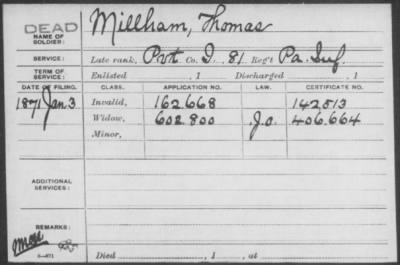 DEAD
NAME OF SOLDIER: Millham, Thomas
SERVICE: Late rank, Pvt. Co. I, 81 Reg't Pa. Inf.
TERM OF SERVICE: Enlisted , 1 Discharged , 1
DATE OF FILING. CLASS. APPLICATION NO. LAW. CERTIFICATE NO.
1871 Jan 3 Invalid, 162668 142513
Widow, 602.800 J.O. 406.664
Minor,
ADDITIONAL SERVICES:
REMARKS:
Died , 1 , at
3—071